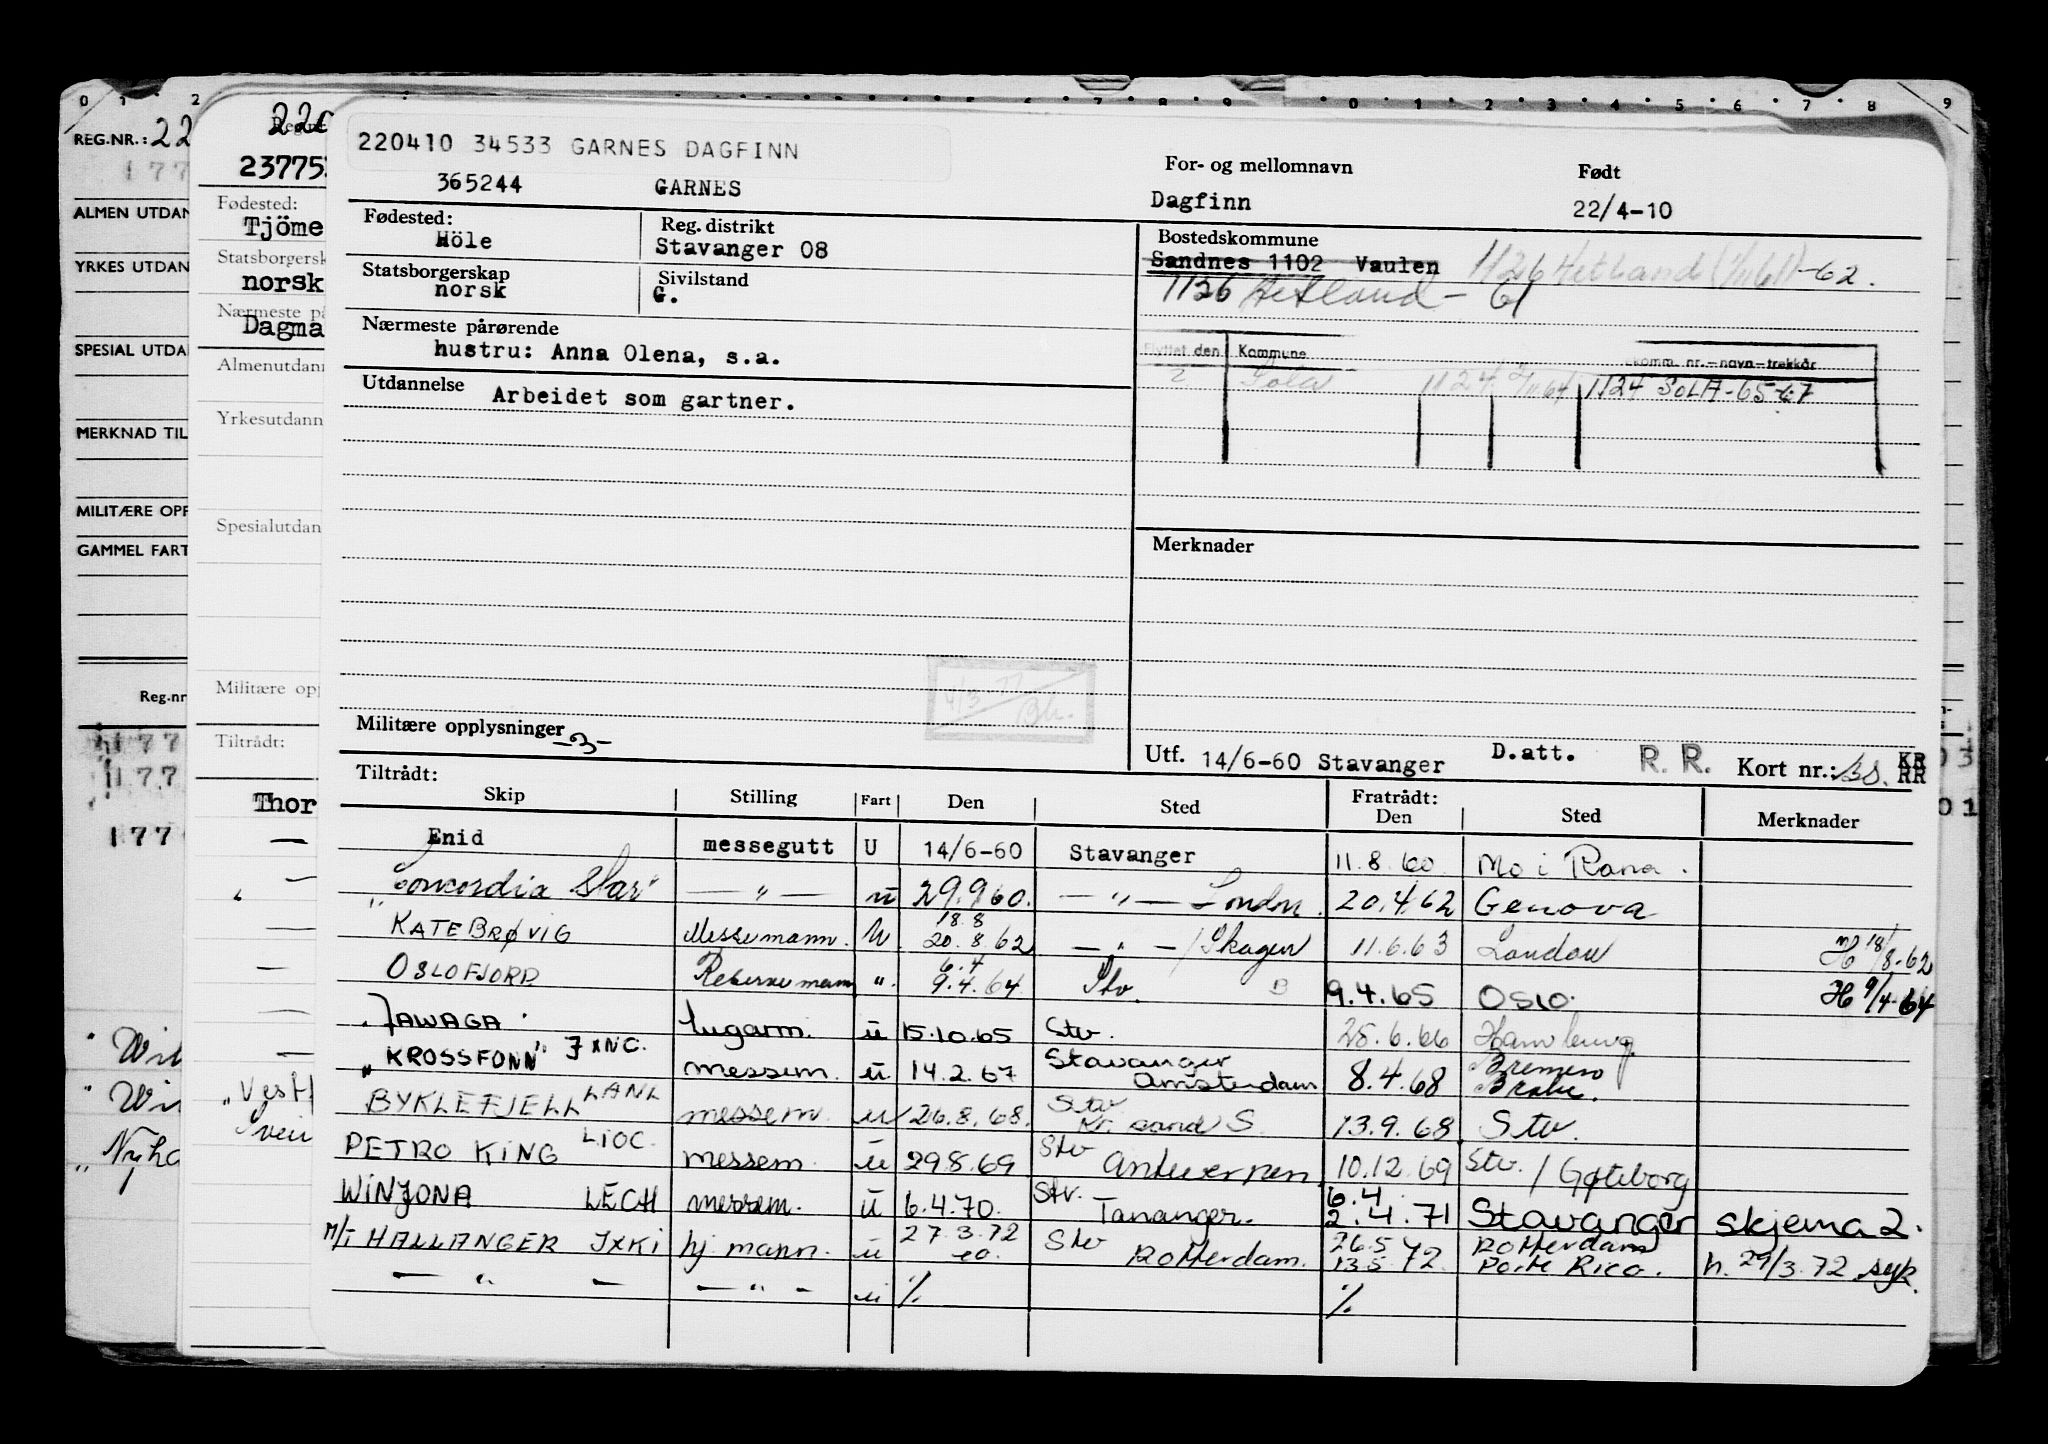 0 1 2 6 7 8 9 0 1 2 3 4 5 6 7 8 9
REG.NR.: 22
177
ALMEN UTDAN
YRKES UTDAN
SPESIAL UTDA
MERKNAD TIL
MILITÆRE OPP
GAMMEL FART
Reg.nr
177
177
177
" Wil
" Wi
" Nyho
220
23775
Fødested:
Tjöme
Statsborgersk
norsk
Nærmeste på
Dagma
Almenutdann
Yrkesutdann
Spesialutdan
Militære opp
Tiltrådt:
Thor
—
—
—
—
—
—
"Vest
Svei
220410 34533 GARNES DAGFINN
365244 GARNES
For- og mellomnavn
Dagfinn
Født
22/4-10
Fødested:
Höle
Reg. distrikt
Stavanger 08
Statsborgerskap
norsk
Sivilstand
G.
Nærmeste pårørende
hustru: Anna Olena, s.a.
Utdannelse Arbeidet som gartner.
Bostedskommune
Sandnes 1102 Vaulen 1126 Hetland (1/1161)-62.
1126 Hetland - 61
Flyttet den Kommune komm. nr.—navn—trekkår
2 Sola 1124 2/11 64 1124 SOLA-65-67
Merknader
4/3-77
Militære opplysninger -3-
Utf. 14/6-60 Stavanger D.att. R. R. Kort nr.: KR
RR
03
01
Tiltrådt: Fratrådt:
Skip Stilling Fart Den Sted Den Sted Merknader
Enid messegutt U 14/6-60 Stavanger 11.8.60 Mo i Rana.
"Concordia Star" — " — u 29.9.60. — " — London. 20.4.62 Genova
KATE BRØVIG Messemann. U. 18.8 20.8.62 — " — / Skagen 11.6.63 London H 18/8-62
OSLOFJORD Reservemann ". 6.4 9.4.64 Stv. B 9.4.65 OSLO. H 9/4-64
"JAWAGA" lugarm. u 15.10.65 Stv. 25.6.66 Hamburg
"KROSSFONN" JXNC. messem. u. 14.2.67 Stavanger Amsterdam 8.4.68 Bremen Brake.
BYKLEFJELL LANL messem. u 26.8.68. Stv Kr. sand S. 13.9.68 Stv.
PETRO KING LIOC. messem. u 29.8.69 Stv Antwerpen 10.12.69 Stv. / Gøteborg
WINJONA LECH messem. u 6.4.70. Stv. Tananger. 6.4. 2.4.71 Stavanger skjema 2.
M/T HALLANGER JXKI hj mann. u 27.3.72 eo. Stv Rotterdam. 26.5 13.5 72. Rotterdam Porto Rico. h. 29/3.72 syk.
— " — — " — u % %